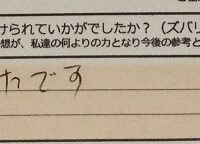 けられていかがでしたか？（ズバリ
想が、私達の何よりの力となり今後の参考と
たです